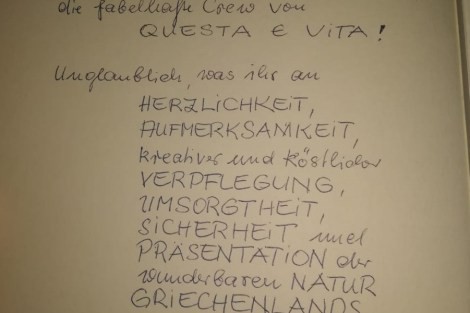 die fabelhafte Crew von
QUESTA E ViTA!
Unglaublich, was ihr an
HERZLiCHKEiT,
AUFMERKSAMKEiT,
kreativer und köstlicher
VERPFLEGUNG,
UMSORGTHEiT,
SiCHERHEiT und
PRÄSENTATiON der
wunderbaren NATUR
GRiECHENLANDS